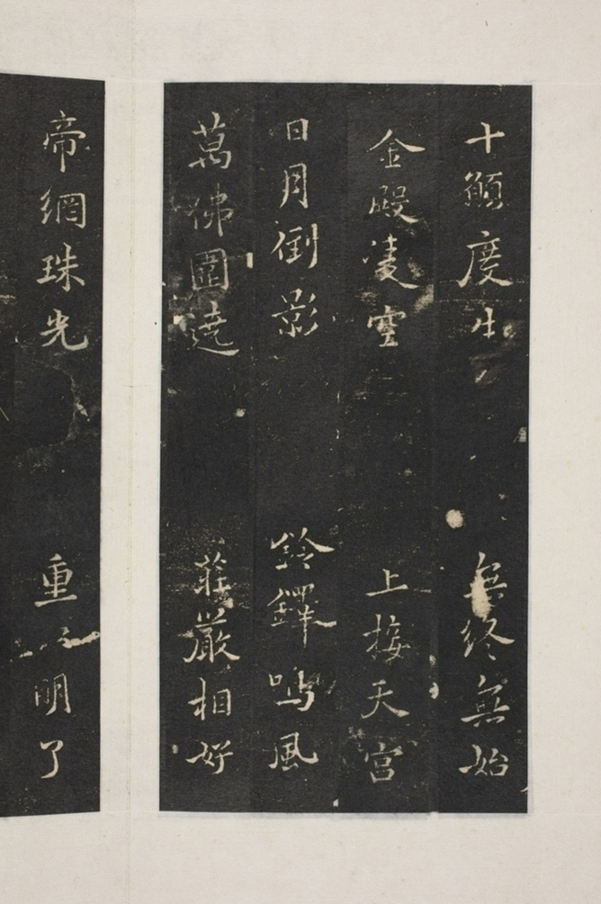 十願度生 無終無始
金殿凌空 上接天宮
日月倒影 鈴鐸鳴風
萬佛圍遶 莊嚴相好
帝網珠光 重 明了